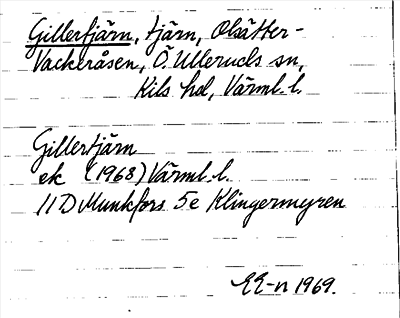 Gillertjärn, tjärn, Olsätter-
Vackeråsen, Ö. Ulleruds sn,
Kils hd, Värml. l.
Gillertjärn
ek (1968) Värml. l.
11D Munkfors 5e Klingermyren
EE-n 1969.